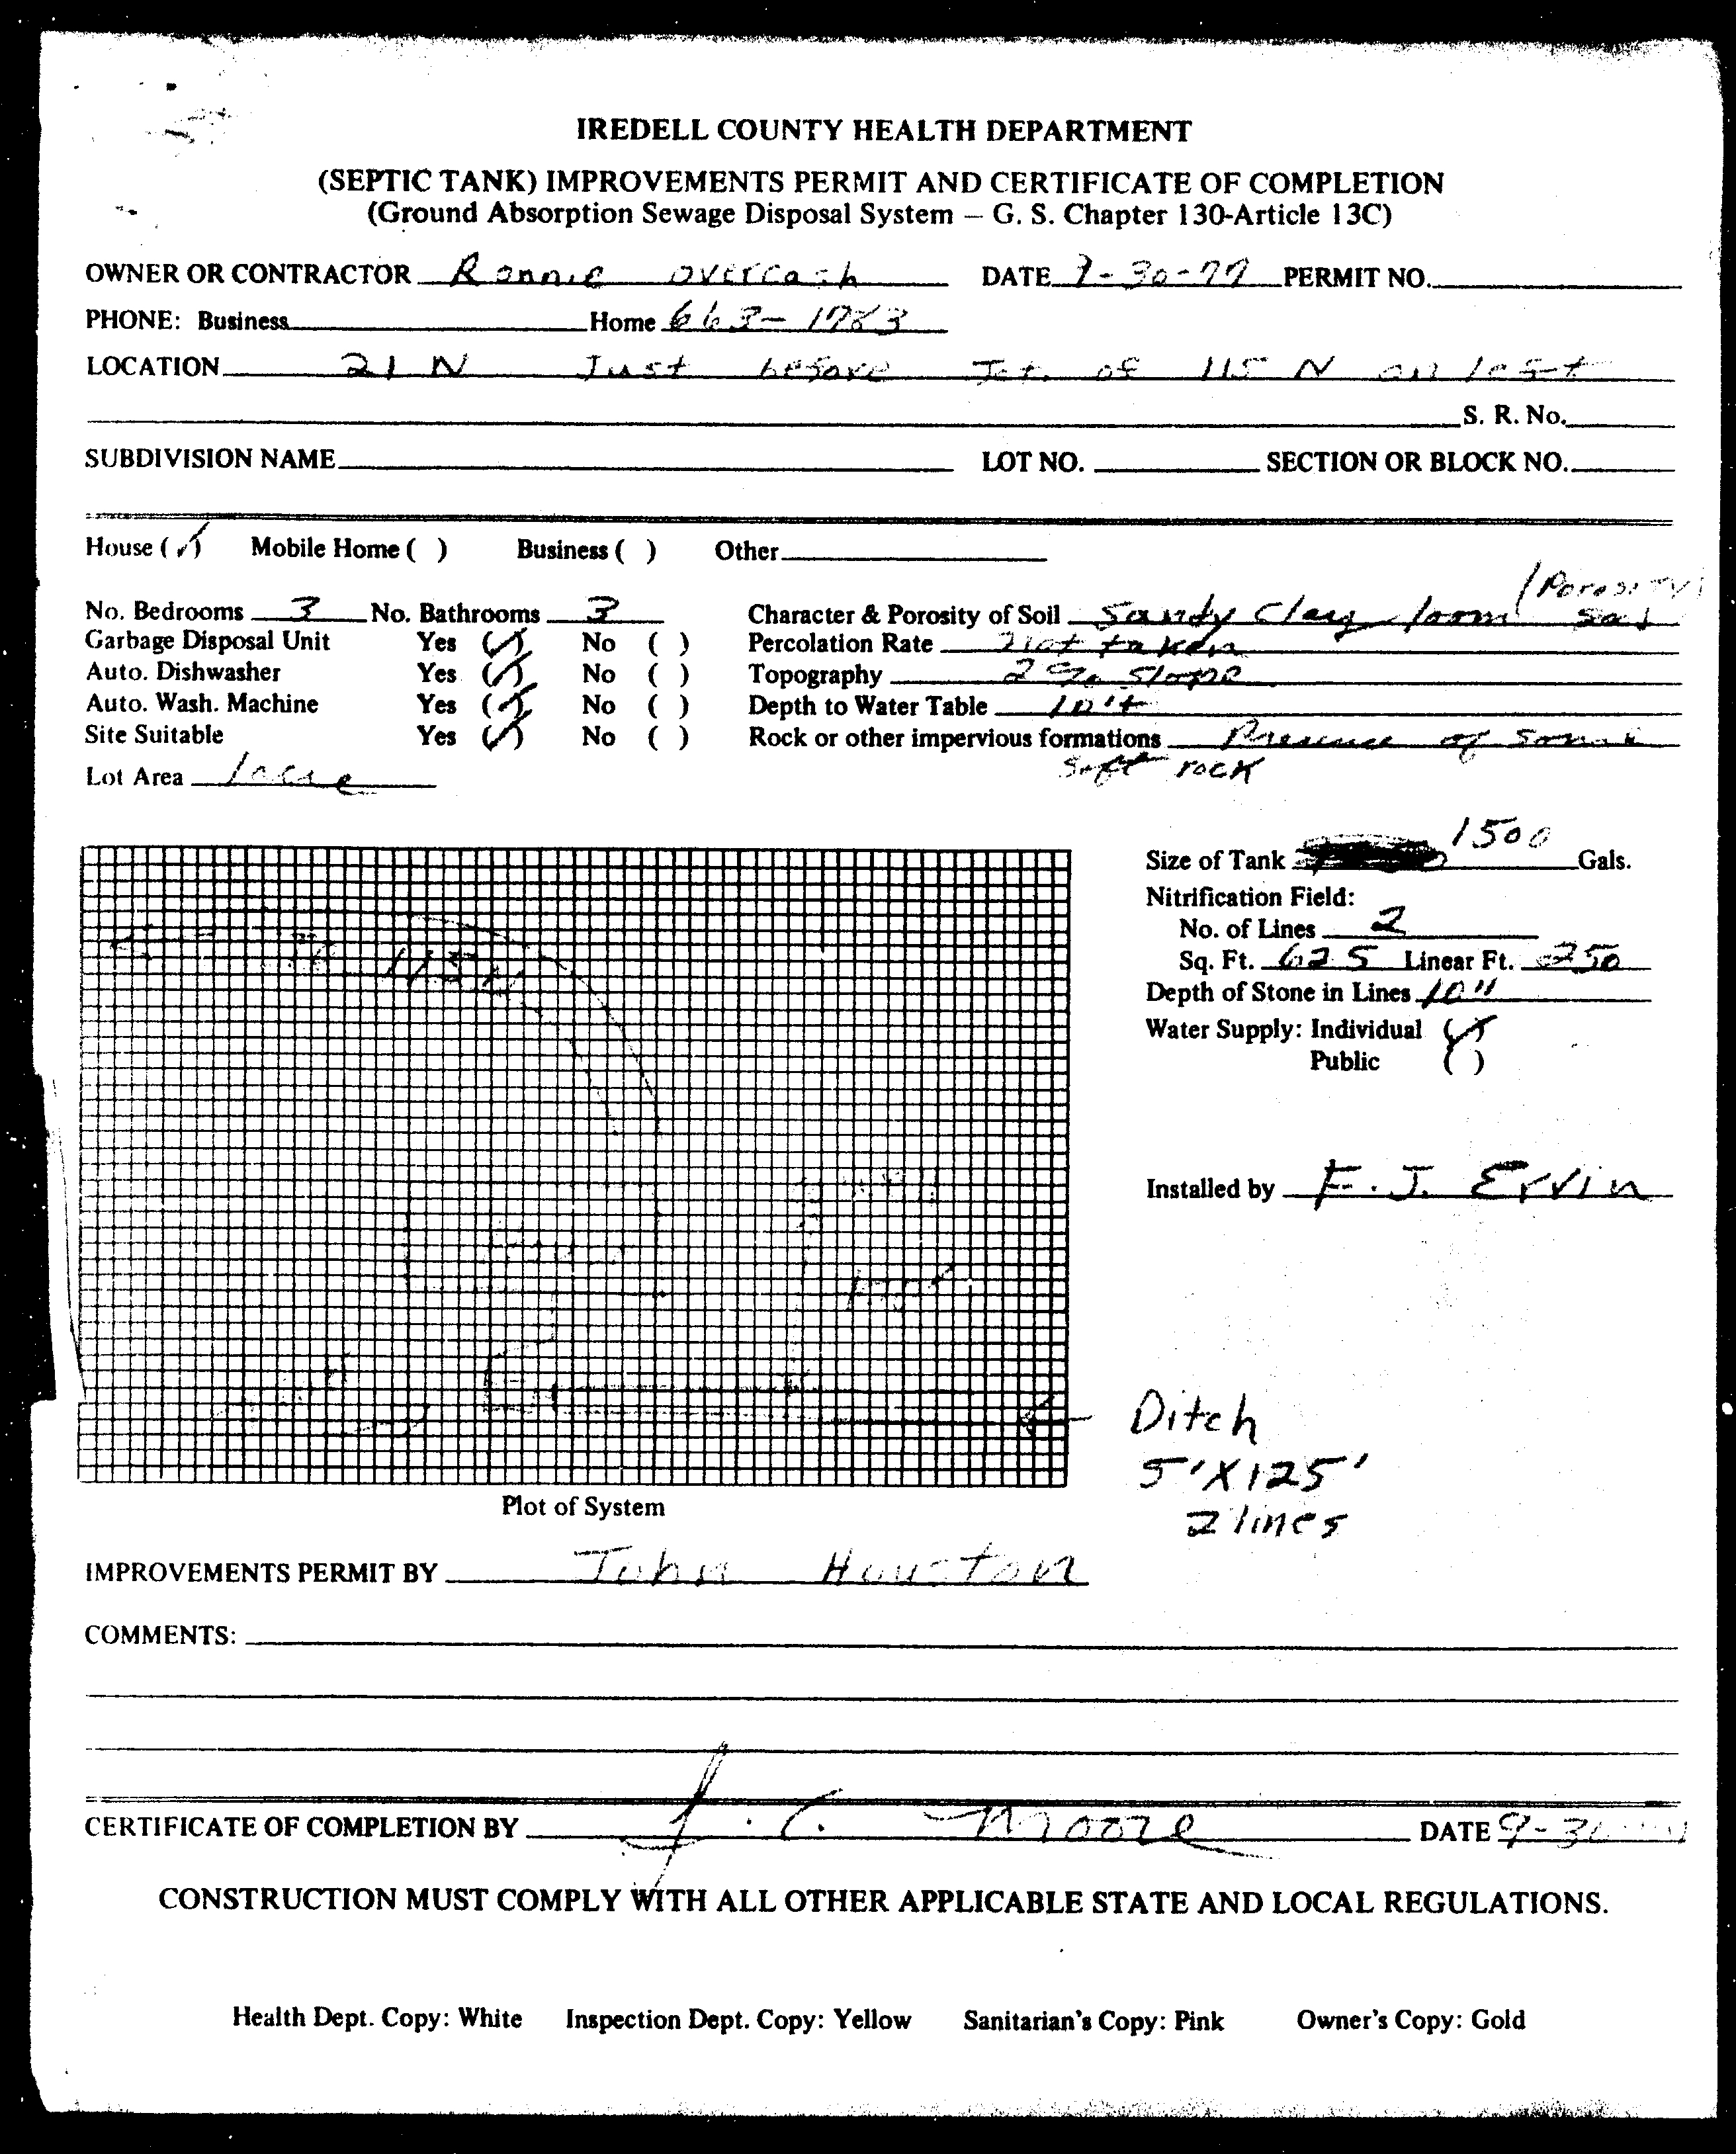 IREDELL COUNTY HEALTH DEPARTMENT
(SEPTIC TANK) IMPROVEMENTS PERMIT AND CERTIFICATE OF COMPLETION
(Ground Absorption Sewage Disposal System – G. S. Chapter 130-Article 13C)
OWNER OR CONTRACTOR Ronnie Overcash DATE 9-30-77 PERMIT NO.
PHONE: Business Home 663-1783
LOCATION 21 N Just before Jct. of 115 N on left
S. R. No.
SUBDIVISION NAME LOT NO. SECTION OR BLOCK NO.
House (✓) Mobile Home ( ) Business ( ) Other
(Porosity)
No. Bedrooms 3 No. Bathrooms 3 Character & Porosity of Soil Sandy Clay loom
Garbage Disposal Unit Yes (✓) No ( ) Percolation Rate not taken
Auto. Dishwasher Yes (✓) No ( ) Topography 2% slope
Auto. Wash. Machine Yes (✓) No ( ) Depth to Water Table 10'+
Site Suitable Yes (✓) No ( ) Rock or other impervious formations Presence of some
soft rock
Lot Area 1 acre
1500
Size of Tank Gals.
Nitrification Field:
No. of Lines 2
Sq. Ft. 625 Linear Ft. 250
Depth of Stone in Lines 10"
Water Supply: Individual (✓)
Public ( )
115 N
Installed by F. J. Ervin
Ditch
5'X125'
2 lines
Plot of System
IMPROVEMENTS PERMIT BY John Houston
COMMENTS:
CERTIFICATE OF COMPLETION BY J. C. Moore DATE
CONSTRUCTION MUST COMPLY WITH ALL OTHER APPLICABLE STATE AND LOCAL REGULATIONS.
Health Dept. Copy: White Inspection Dept. Copy: Yellow Sanitarian's Copy: Pink Owner's Copy: Gold